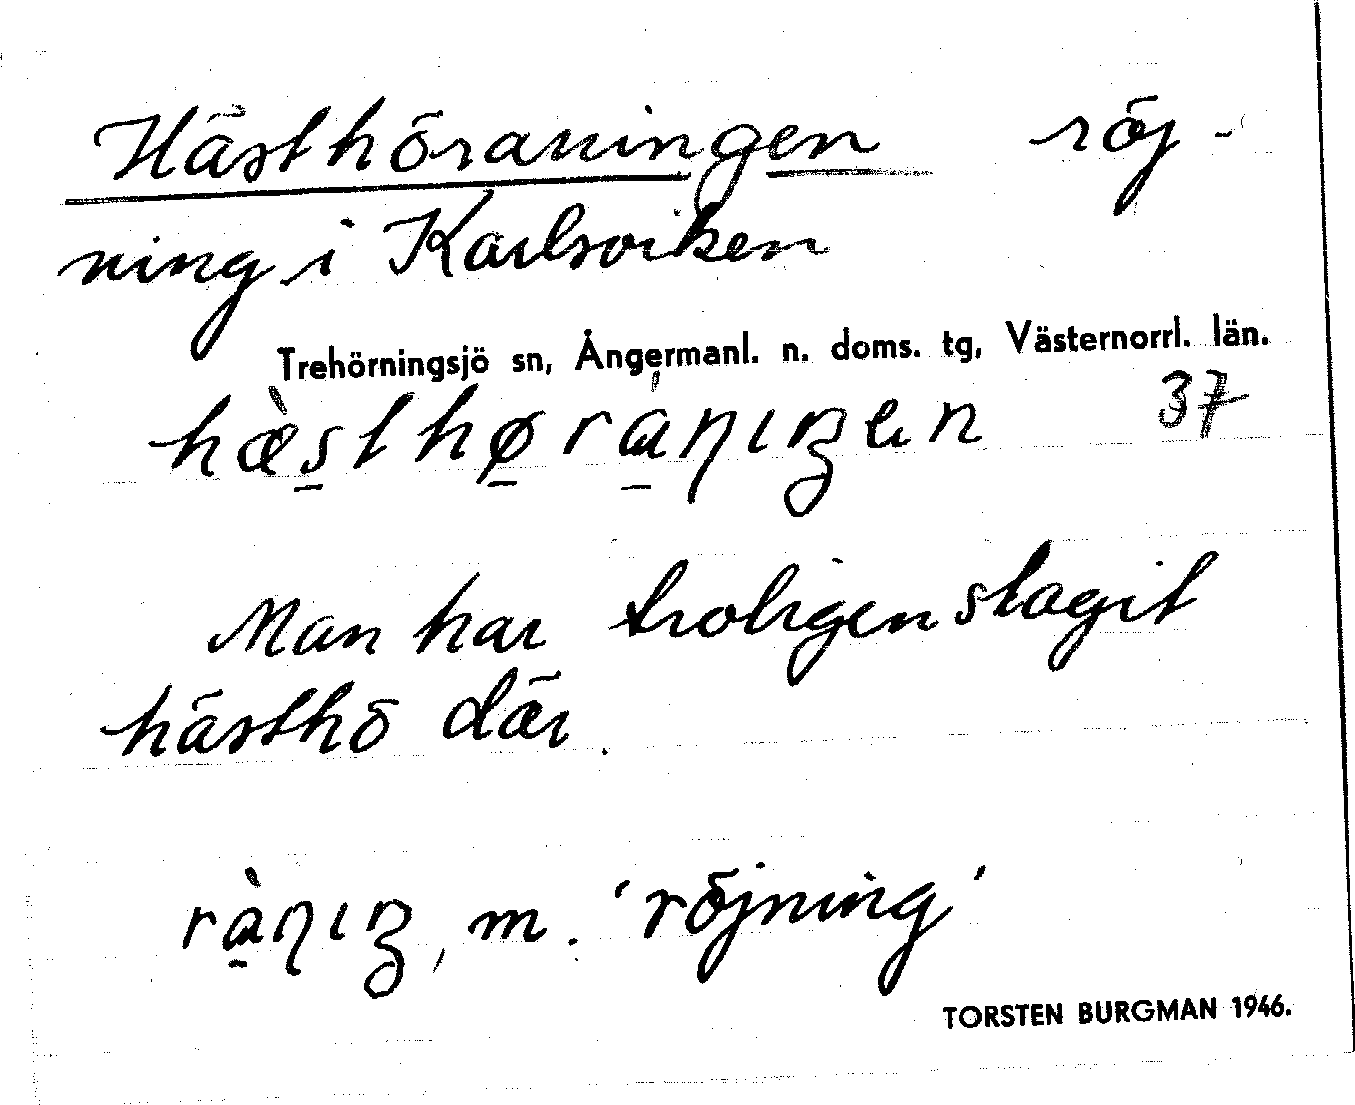 Hästhöraningen röj-
ning i Karlsviken
Trehörningsjö sn, Ångermanl. n. doms. tg, Västernorrl. län.
hæ̀sthøráηıŋen 37
Man har troligen slagit
hästhö där.
ràηıŋ, m. 'röjning'
TORSTEN BURGMAN 1946.